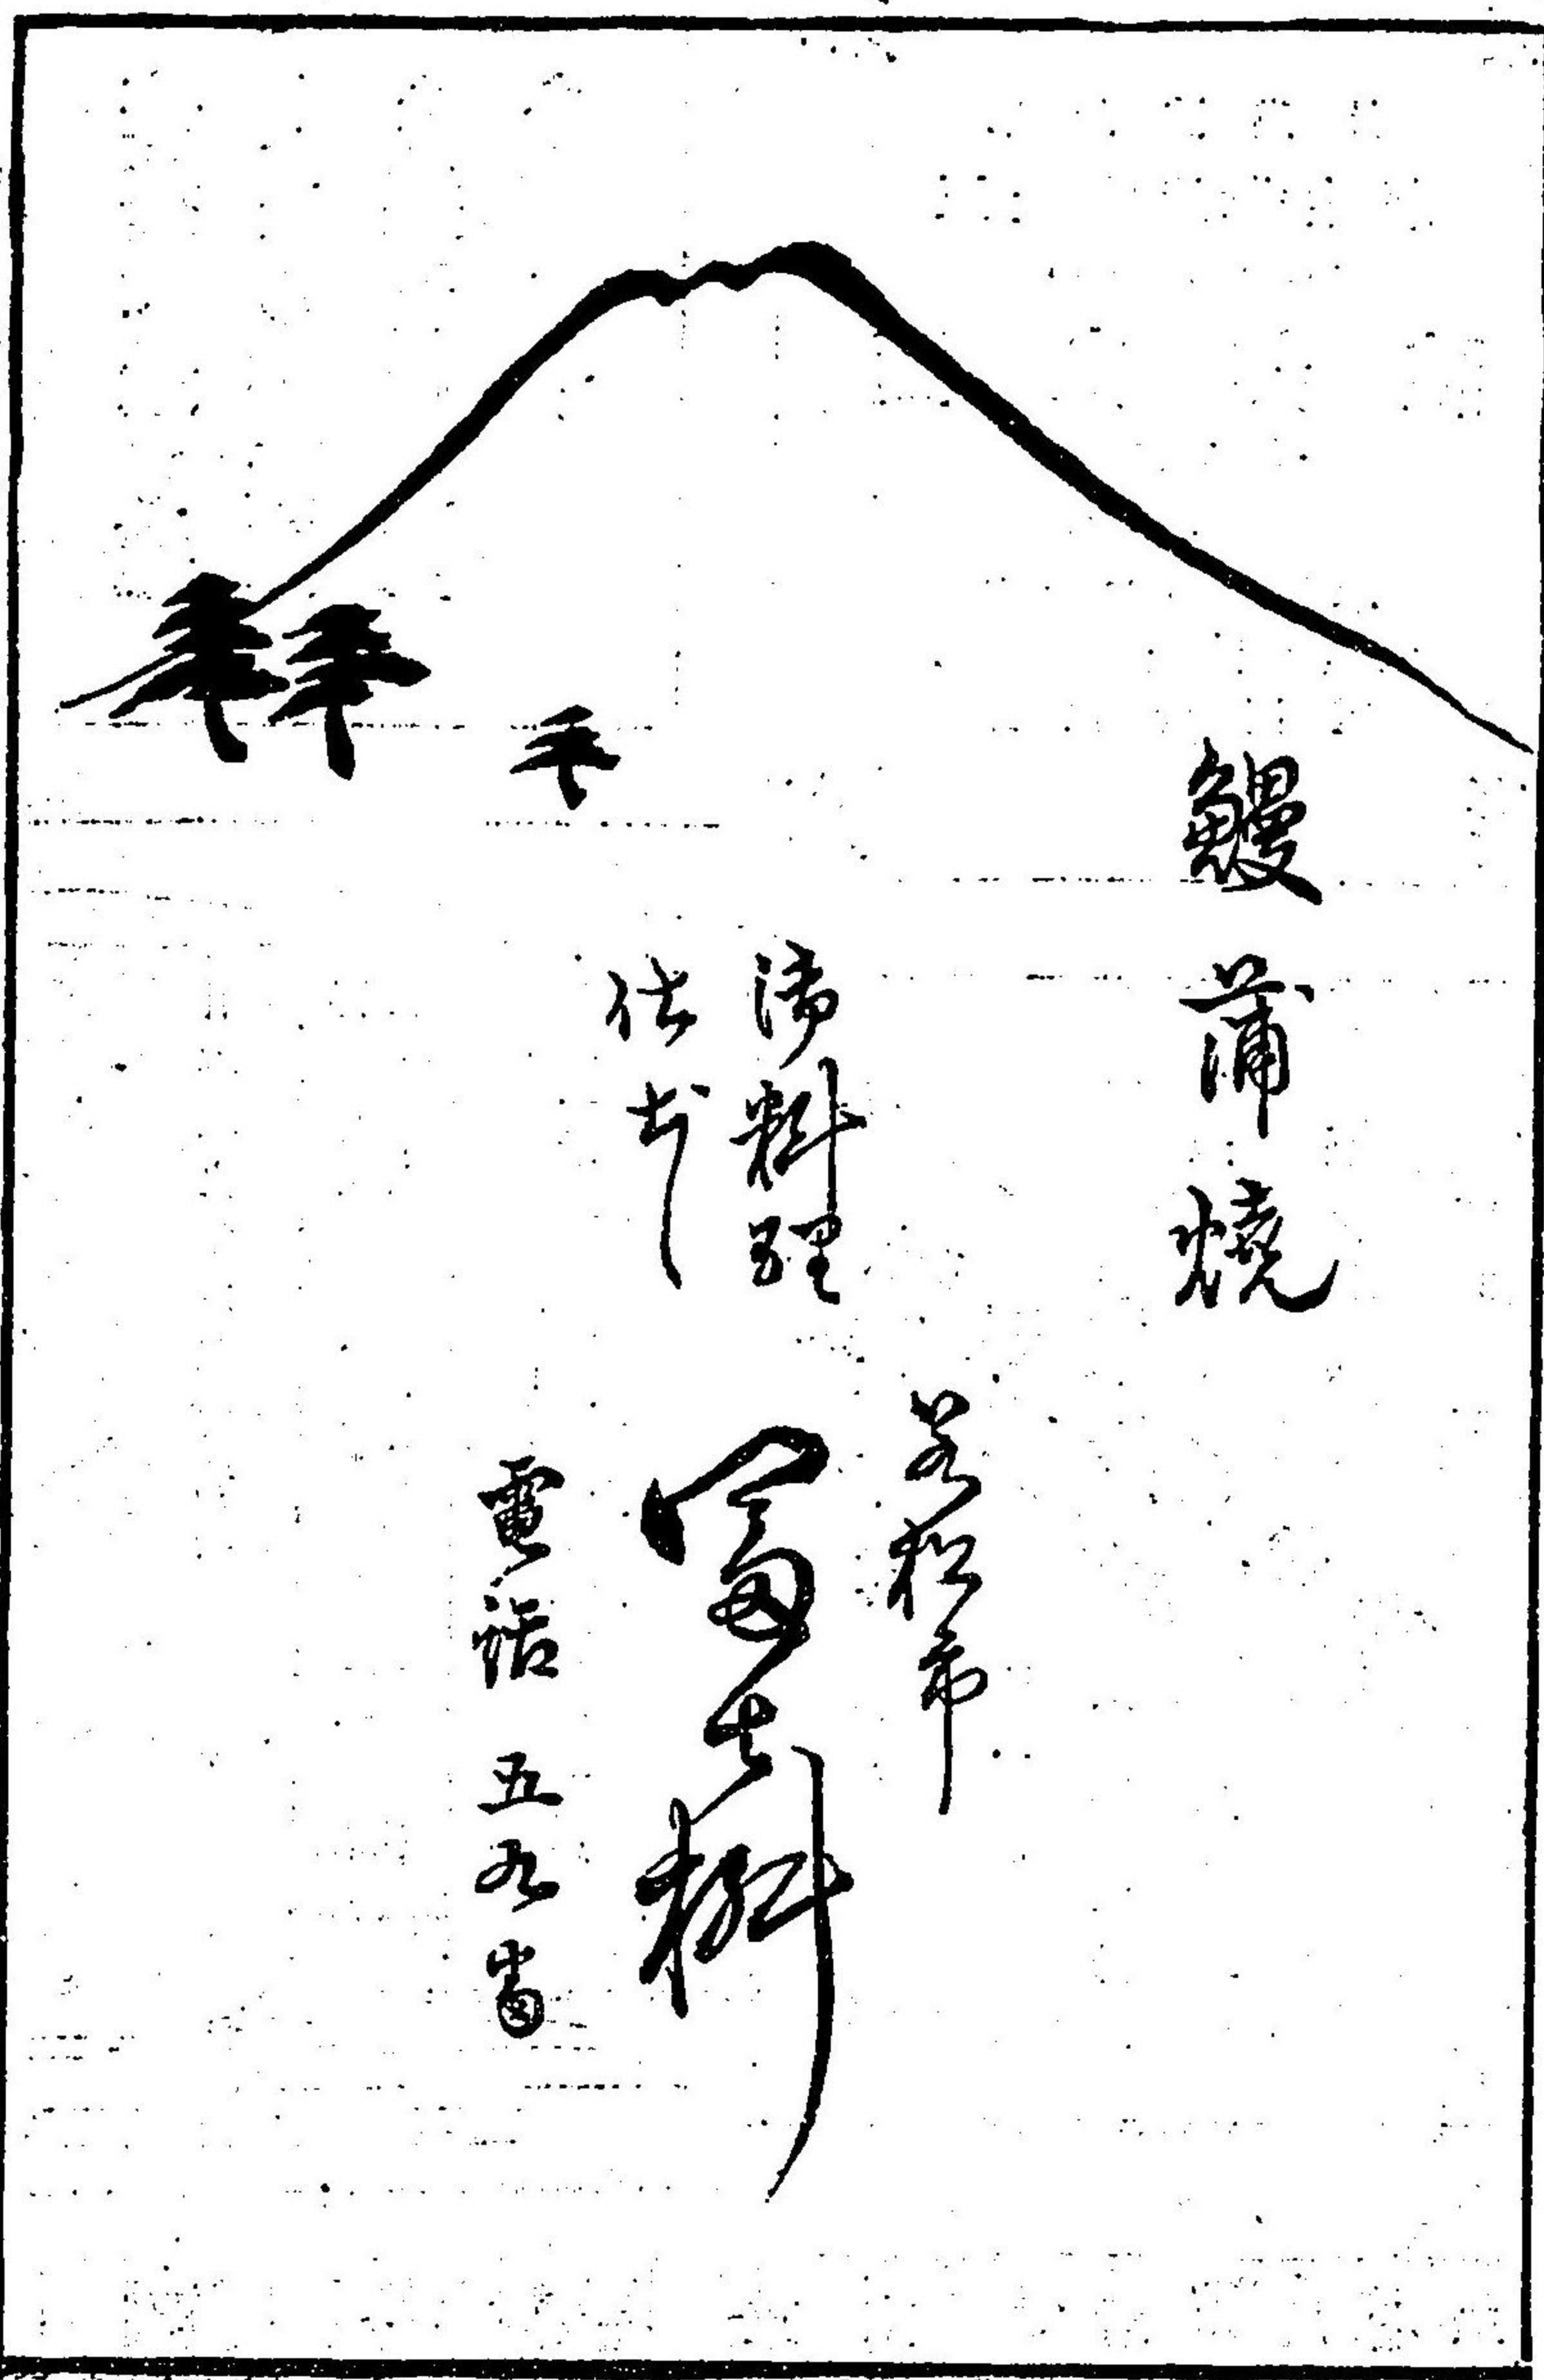 鰻蒲燒
御料理
仕出し
若松市
冨士桝
電話 五九番